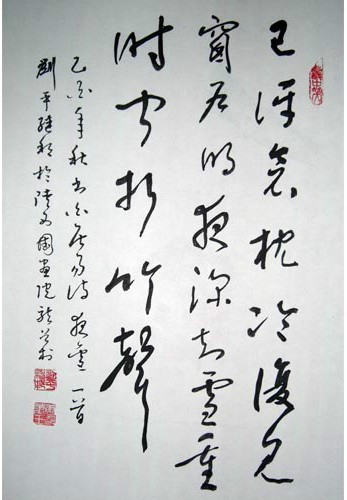 已訝衾枕冷復見
窗戶明夜深知雪重
時聞折竹聲
乙酉年秋书白居易诗夜雪一首
劉平於國畫院